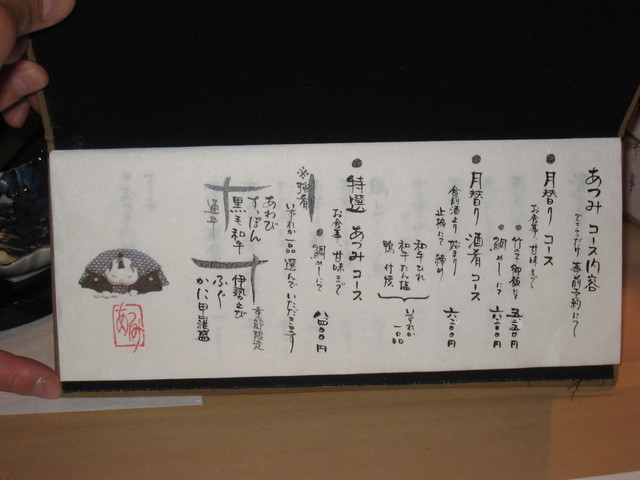 あつみ コース内容
でき
月替り コース
お食事、甘味まで
竹の子御飯にて 五二五〇円
鯛めしにて 六三〇〇円
月替り 酒肴 コース
食前酒より 始まり
止椀にて 締め 六三〇〇円
和牛ひれ
和牛たん塩
鴨 付焼
いずれか
一品
特選 あつみ コース
お食事、甘味まで
鯛めしにて 八四〇〇円
※強肴
いずれか一品 選んでいただきます
あわび
すっぽん
黒毛和牛
通年
季節限定
伊勢えび
ふぐ
かに甲羅盛
あつみ